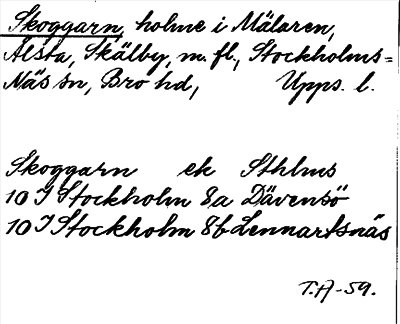 Skoggarn, holme i Mälaren,
Ålsta, Skälby, m. fl., Stockholms-
Näs sn, Bro hd, Upps. l.
Skoggarn ek Sthlms
10 I Stockholm 8a Dävensö
10 I Stockholm 8b Lennartsnäs
T.A-59.